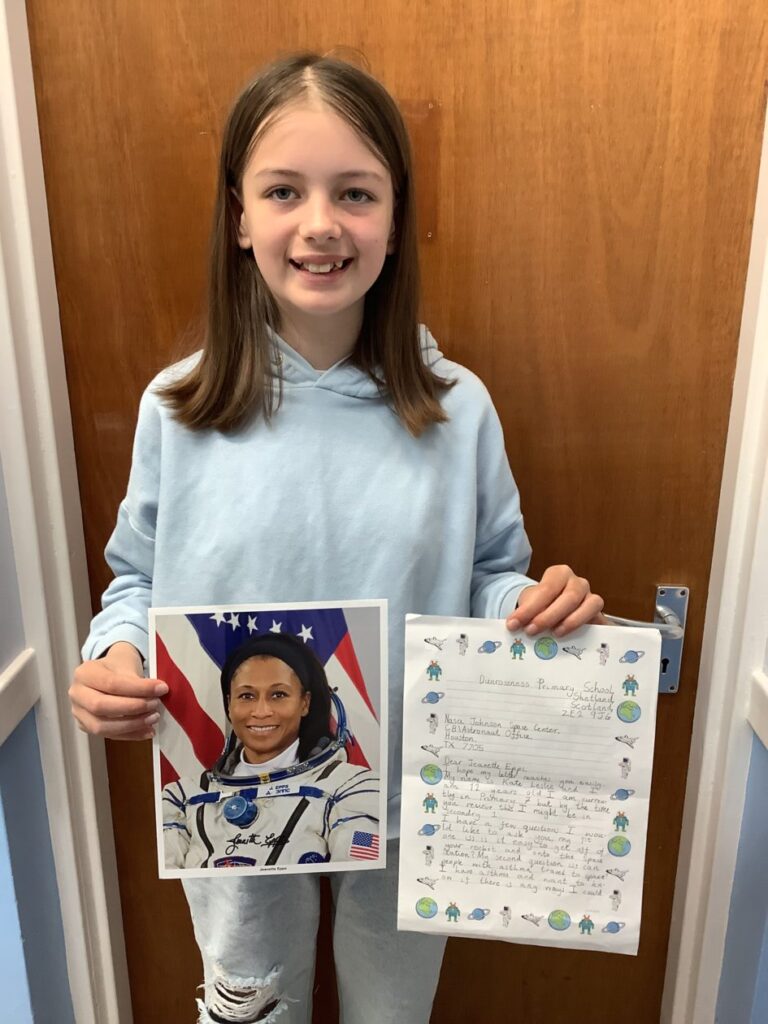 J. EPPS
Jeanette Epps
Jeanette Epps
Dunrossness Primary School
Shetland
Scotland
ZE2 9JG
Nasa Johnson Space Center,
CB/Astronaut Office,
Houston,
TX 7705
Dear Jeanette Epps,
I hope my letter reaches you easily.
My name is Kate Leslie and I
am 12 years old I am curren-
tly in Primary 7 but by the time
you receive this I might be in
Secondary 1.
I have a few question I wou-
ld like to ask you my fir
one is is it easy to get off of
your rocket and onto the space
station? My second question is can
people with asthma travel to space
I have asthma and want to kn-
ow if there is any ways I could